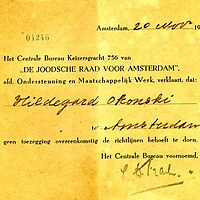 Amsterdam, 20 Nov 19
04246
Het Centrale Bureau Keizersgracht 756 van
„DE JOODSCHE RAAD VOOR AMSTERDAM”,
afd. Ondersteuning en Maatschappelijk Werk, verklaart, dat:
Hildegard Okonski
te Amsterdam
geen toezegging overeenkomstig de richtlijnen behoeft te doen.
Het Centrale Bureau voornoemd,